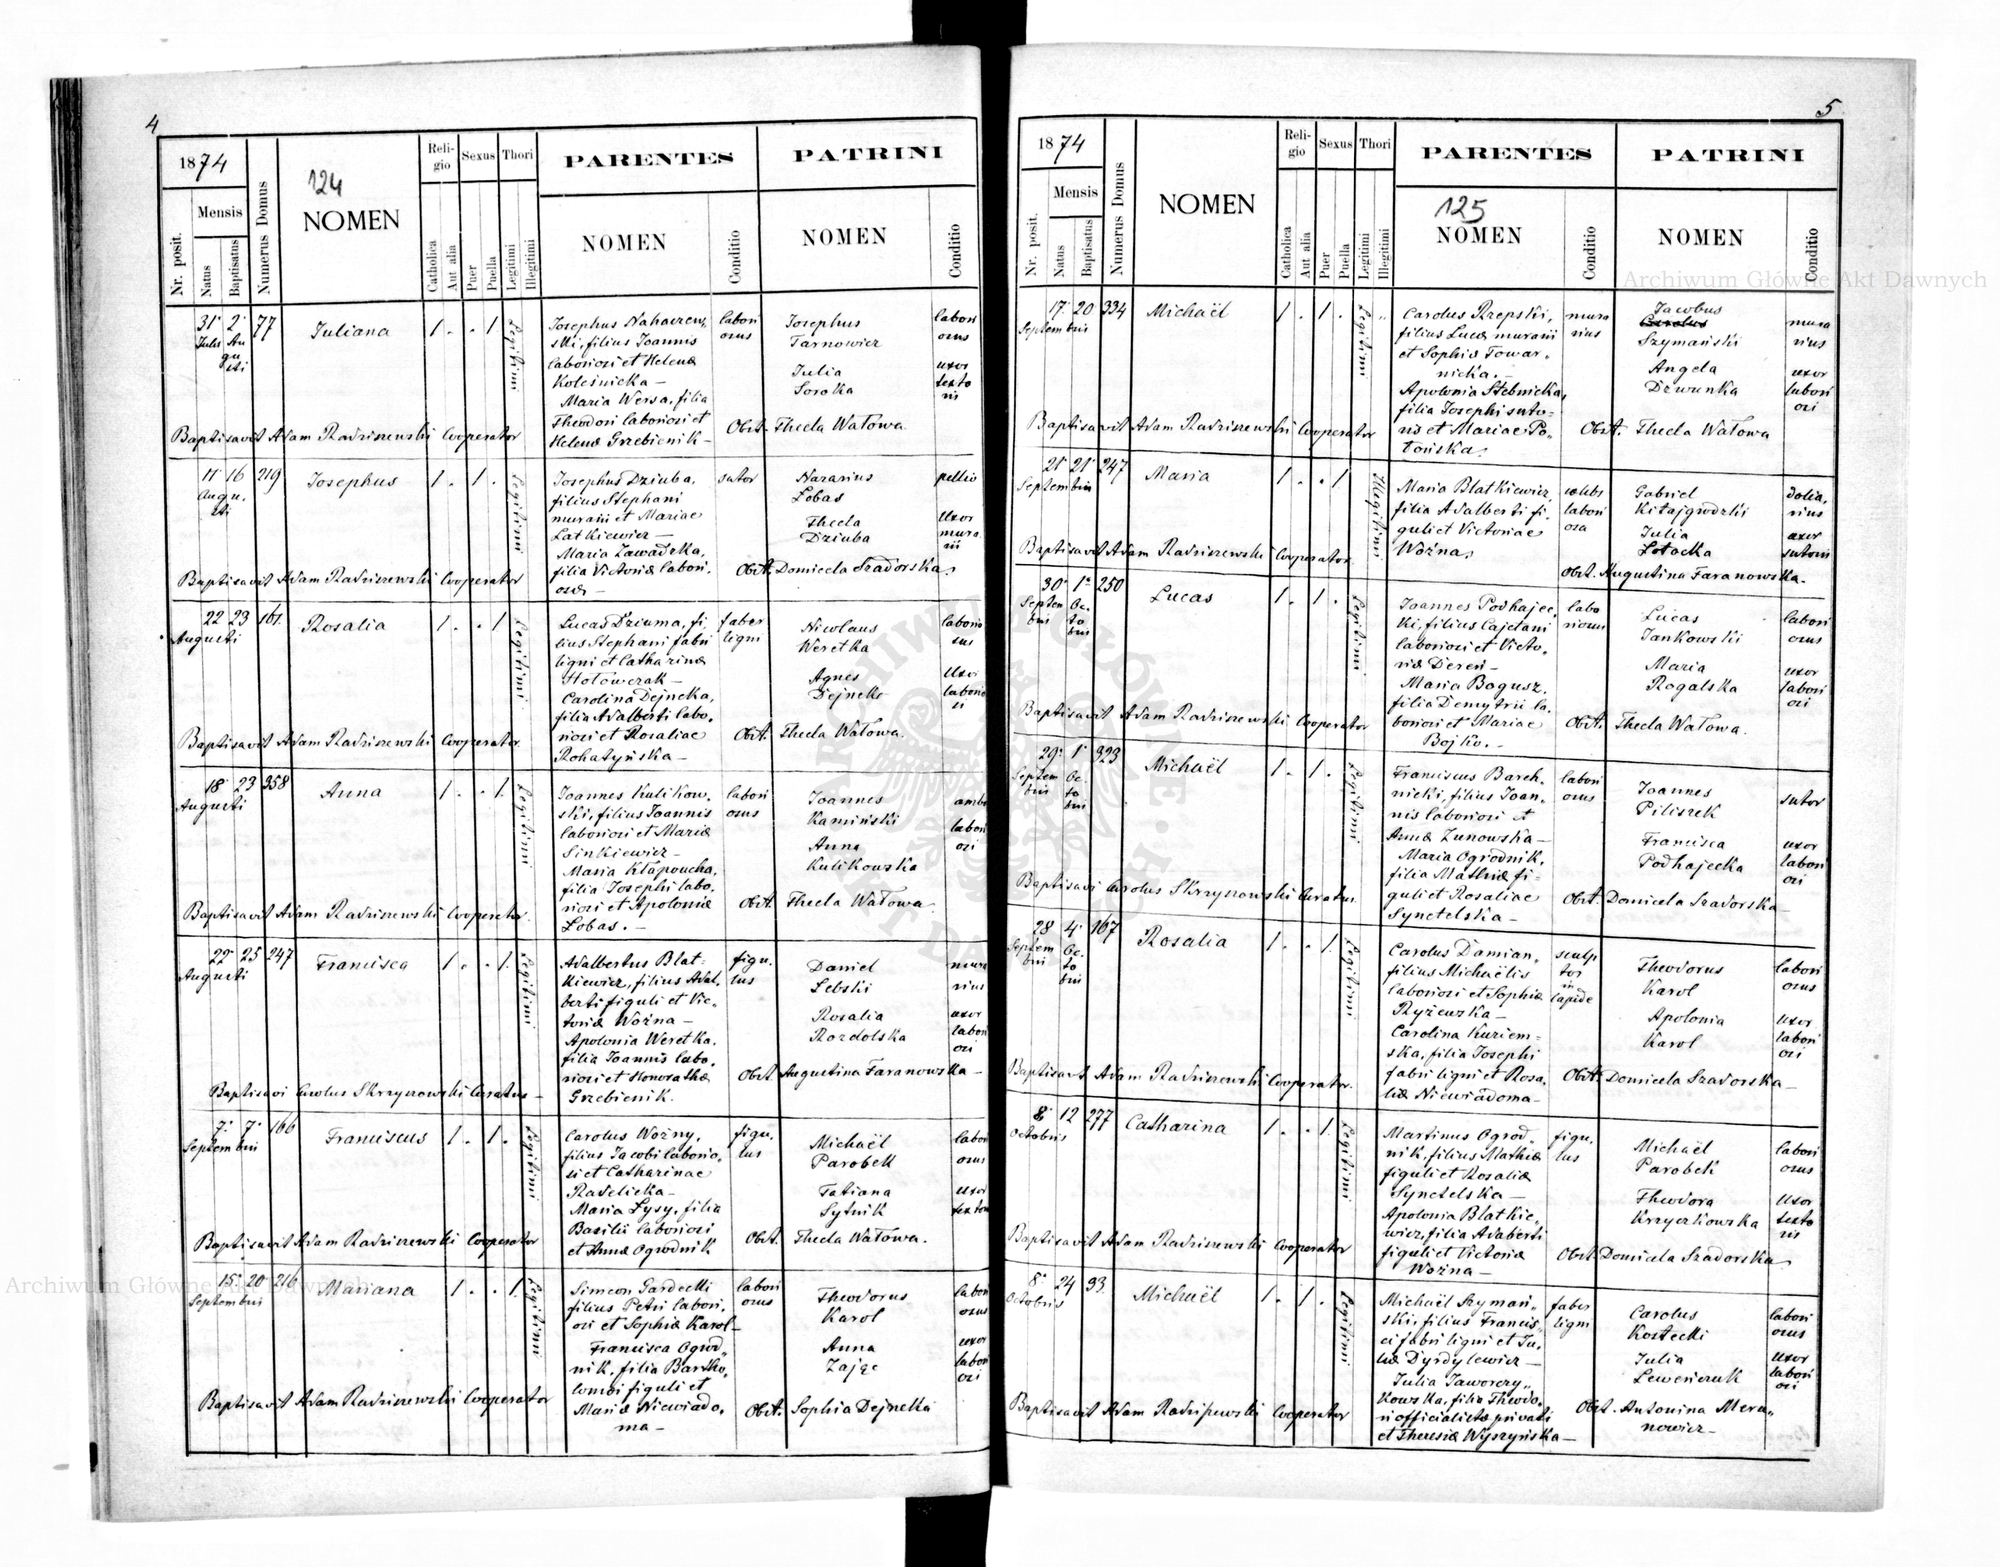 4
1874
Numerus Domus
124
NOMEN
Religio
Sexus
Thori
PARENTES
PATRINI
Mensis
Nr. posit.
Natus
Baptisatus
Catholica
Aut alia
Puer
Puella
Legitimi
Illegitimi
NOMEN
Conditio
NOMEN
Conditio
31 2 77 Juliana 1 . . 1 Legitimi
Julii Augusti
Josephus Nahaczew,
ski, filius Joannis
laboriosi et Helenæ
Koleśnicka —
Maria Wersa, filia
Theodori laboriosi et
Helenæ Grzebienik —
laboriosus
Josephus
Tarnowicz
laboriosus
Julia
Soroka
uxor
textoris
Baptisavit Adam Radziszewski Cooperator
Obst. Thecla Watowa
11 16 219 Josephus 1 . 1 . Legitimi
Augusti
Josephus Dziuba,
filius Stephani
murarii et Mariae
Latkiewicz —
Maria Zawadzka,
filia Victoriæ labori.
osæ —
sutor
Nazarius
Lobas
pellio
Thecla
Dziuba
uxor
murarii
Baptisavit Adam Radziszewski Cooperator
Obst. Domicela Szadorska
22 23 161 Rosalia 1 . . 1 Legitimi
Augusti
Lucas Dziuma, fi,
lius Stephani fabri
ligni et Catharinæ
Hołówczak —
Carolina Dejneka,
filia Adalberti labo,
riosi et Rosaliae
Rohatyńska —
faber
ligni
Nicolaus
Weretka
laboriosus
Agnes
Dejneko
uxor
laboriosi
Baptisavit Adam Radziszewski Cooperator
Obst. Thecla Watowa.
18 23 358 Anna 1 . . 1. Legitimi
Augusti
Joannes Kulikow,
ski, filius Joannis
laboriosi et Mariæ
Sinkiewicz —
Maria Kłapoucha,
filia Josephi labo,
riosi et Apoloniæ
Lobas. —
laboriosus
Joannes
Kamiński
ambo
laboriosi
Anna
Kulikowska
Baptisavit Adam Radziszewski Cooperator.
Obst. Thecla Watowa
22 25 247 Francisca 1 . . 1. Legitimi
Augusti
Adalbertus Blat-
kiewicz, filius Adal,
berti figuli et Vic,
toriæ Woźna —
Apolonia Weretka,
filia Joannis labo,
riosi et Honorathæ
Grzebienik.
figulus
Daniel
Lebski
murarius
Rosalia
Rozdolska
uxor
laboriosi
Baptisavi Carolus Skrzyszowski Curatus —
Obst. Augustina Taranowska —
7. 7. 166 Franciscus 1 . 1 . Legitimi
Septembris
Carolus Woźny,
filius Jacobi laborio,
si et Catharinae
Radelicka —
Maria Łysy, filia
Basilii laboriosi
et Annæ Ogrodnik
figulus
Michaël
Parobek
laboriosus
Tatiana
Sytnik
uxor
textoris
Baptisavit Adam Radziszewski Cooperator
Obst. Thecla Watowa.
15. 20 216 Mariana 1 . . 1 Legitimi
Septembris
Simeon Gardecki
filius Petri labori,
osi et Sophiæ Karol —
Francisca Ogrod,,
nik, filia Bartho,
lomæi figuli et
Mariæ Niewiado,
ma —
laboriosus
Theodorus
Karol
laboriosus
Anna
Zając
uxor
laboriosi
Baptisavit Adam Radziszewski Cooperator
Obst. Sophia Dejneka
5
1874
Numerus Domus
NOMEN
Religio
Sexus
Thori
PARENTES
PATRINI
Mensis
Nr. posit.
Natus
Baptisatus
Catholica
Aut alia
Puer
Puella
Legitimi
Illegitimi
125
NOMEN
Conditio
NOMEN
Conditio
17. 20 334 Michaël 1 . 1 . Legitimi
Septembris
Carolus Rzepski,
filius Lucæ murarii
et Sophiæ Towar,,
nicka. —
Apolonia Stebnicka,
filia Josephi suto=
ris et Mariae Po,
tońska.
murarius
Jacobus
Carolus
Szymański
murarius
Angela
Dzwunka
uxor
laboriosi
Baptisavit Adam Radziszewski Cooperator
Obst. Thecla Watowa
21 21 247 Maria 1 . . 1 Illegitimi
Septembris
Maria Blatkiewicz,
filia Adalberti fi,
guli et Victoriae
Woźna,
cælebs
laboriosa
Gabriel
Kitajgrodzki
doliarius
Julia
Łotocka
uxor
sutoris
Baptisavit Adam Radziszewski Cooperator
Obst. Augustina Taranowska.
30 1 250 Lucas 1 . 1 . Legitimi
Septembris Octobris
Joannes Podhajec,
ki, filius Cajetani
laboriosi et Victo,
riæ Dereń —
Maria Bogusz,
filia Demytrii la,
boriosi et Mariae
Bojko. —
laboriosus
Lucas
Jankowski
laboriosus
Maria
Rogalska
uxor
laboriosi
Baptisavit Adam Radziszewski Cooperator
Obst. Thecla Watowa.
29. 1 323 Michaël 1 . 1 . Legitimi
Septembris Octobris
Franciscus Barch-
nicki, filius Joan,
nis laboriosi et
Annæ Zunowska —
Maria Ogrodnik,
filia Mathiæ fi-
guli et Rosaliae
Synetelska —
laboriosus
Joannes
Piliszek
sutor
Francisca
Podhajecka
uxor
laboriosi
Baptisavi Carolus Skrzyszowski Curatus
Obst. Domicela Szadorska
28 4 167 Rosalia 1 . . 1. Legitimi
Septembris Octobris
Carolus Damian,
filius Michaëlis
laboriosi et Sophiæ
Ryżewska —
Carolina Kuziem=
ska, filia Josephi
fabri ligni et Rosa,
liæ Niewiadoma —
sculptor
in
lapide
Theodorus
Karol
laboriosus
Apolonia
Karol
uxor
laboriosi
Baptisavit Adam Radziszewski Cooperator.
Obst. Domicela Szadorska —
8. 12 277 Catharina 1 . . 1. Legitimi
Octobris
Martinus Ogrod,
nik, filius Mathiæ
figuli et Rosaliæ
Synetelska —
Apolonia Blatkie,
wicz, filia Adalberti
figuli et Victoriæ
Woźna —
figulus
Michaël
Parobek
laboriosus
Theodora
Krzyczkowska
uxor
textoris
Baptisavit Adam Radziszewski Cooperator
Obst. Domicela Szadorska
8. 24 93. Michaël 1 . 1 . Legitimi
Octobris
Michaël Szymań,,
ski, filius Francis,
ci fabri ligni et Ju,
liæ Dyrdylewicz —
Julia Jaworczy,,
kowska, filia Theodo,
ri officialistæ privati
et Theresiæ Wyszyńska —
faber
ligni
Carolus
Kostecki
laboriosus
Julia
Leweńczuk
uxor
laboriosi
Baptisavit Adam Radziszewski Cooperator
Obst. Antonina Meru,,
nowicz —
Archiwum Główne Akt Dawnych
Archiwum Główne Akt Dawnych